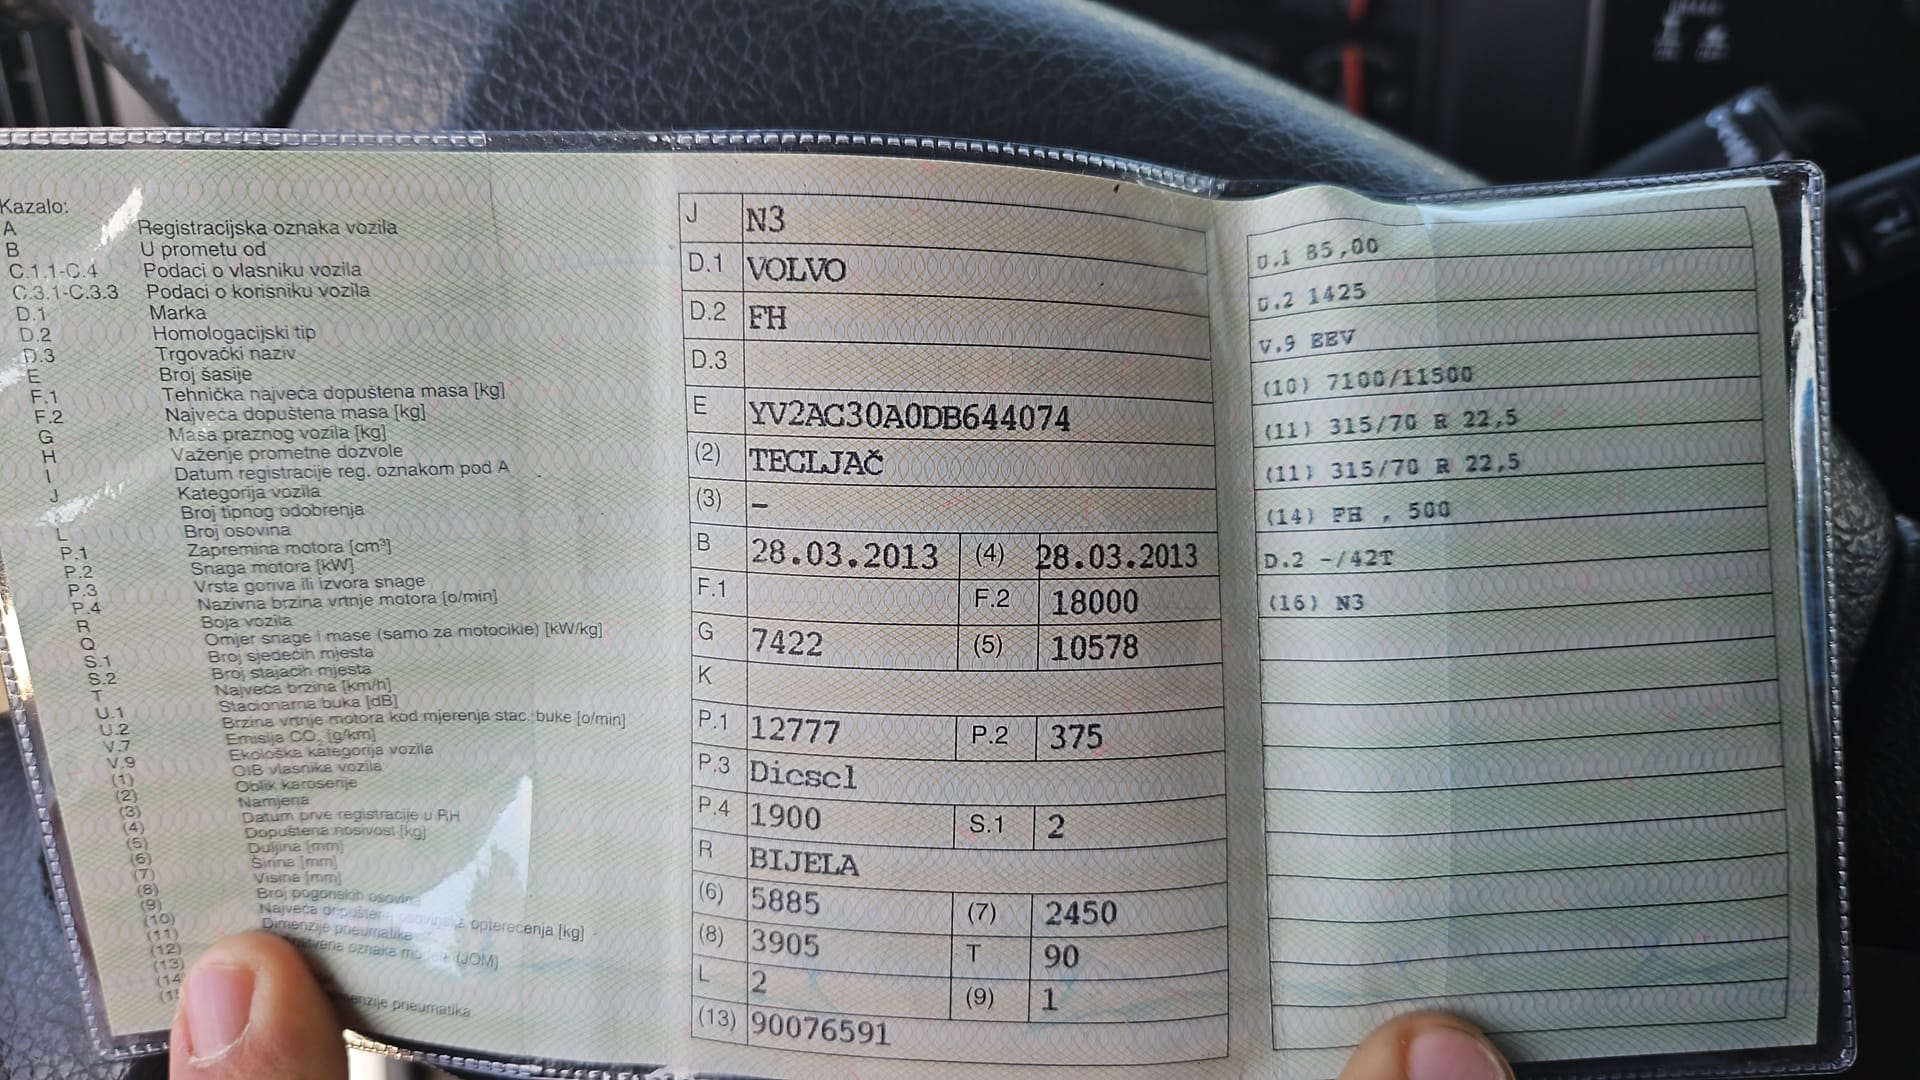 Kazalo:
A Registracijska oznaka vozila
B U prometu od
C.1.1-C.4 Podaci o vlasniku vozila
C.3.1-C.3.3 Podaci o korisniku vozila
D.1 Marka
D.2 Homologacijski tip
D.3 Trgovački naziv
E Broj šasije
F.1 Tehnička najveća dopuštena masa [kg]
F.2 Najveća dopuštena masa [kg]
G Masa praznog vozila [kg]
H Važenje prometne dozvole
I Datum registracije reg. oznakom pod A
J Kategorija vozila
Broj tipnog odobrenja
L Broj osovina
P.1 Zapremina motora [cm³]
P.2 Snaga motora [kW]
P.3 Vrsta goriva ili izvora snage
P.4 Nazivna brzina vrtnje motora [o/min]
R Boja vozila
Q Omjer snage i mase (samo za motocikle) [kW/kg]
S.1 Broj sjedećih mjesta
S.2 Broj stajaćih mjesta
T Najveća brzina [km/h]
U.1 Stacionarna buka [dB]
U.2 Brzina vrtnje motora kod mjerenja stac. buke [o/min]
V.7 Emisija CO₂ [g/km]
V.9 Ekološka kategorija vozila
(1) OIB vlasnika vozila
(2) Oblik karoserije
(3) Namjena
(4) Datum prve registracije u RH
(5) Dopuštena nosivost [kg]
(6) Duljina [mm]
(7) Širina [mm]
(8) Visina [mm]
(9) Broj pogonskih osovina
(10) Najveća dopuštena osovinska opterećenja [kg]
(11) Dimenzije pneumatika
(12) oznaka (JOM)
(13)
(14
pneumatika
J N3
D.1 VOLVO
D.2 FH
D.3
E YV2AG30A0DB644074
(2) TEGLJAČ
(3) –
B 28.03.2013 (4) 28.03.2013
F.1 F.2 18000
G 7422 (5) 10578
K
P.1 12777 P.2 375
P.3 Diesel
P.4 1900 S.1 2
R BIJELA
(6) 5885 (7) 2450
(8) 3905 T 90
L 2 (9) 1
(13) 90076591
U.1 85,00
U.2 1425
V.9 EEV
(10) 7100/11500
(11) 315/70 R 22,5
(11) 315/70 R 22,5
(14) FH , 500
D.2 -/42T
(16) N3